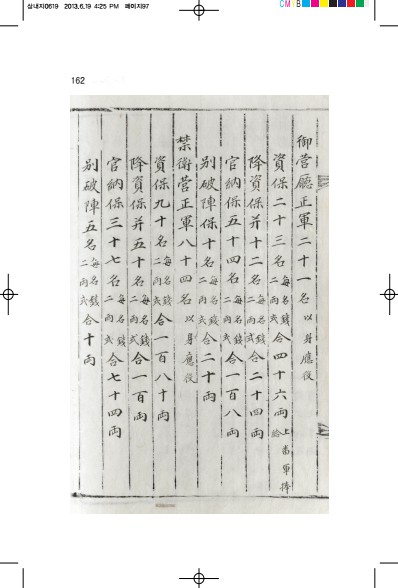 삼내지0619 2013.6.19 4:25 PM 페이지97
CM B
162
御营廳正軍二十一名以身應役
資保二十三名每名錢二両式合四十六両上番軍捧給
降資保并十二名每名錢二両式合二十四両
官納保五十四名每名錢二両式合一百八両
別破陣保十名每名錢二両式合二十両
禁衛营正軍八十四名以身應役
資保九十名每名錢二両式合一百八十両
降資保并五十名每名錢二両式合一百両
官納保三十七名每名錢二両式合七十四両
別破陣五名每名錢二両式合十両